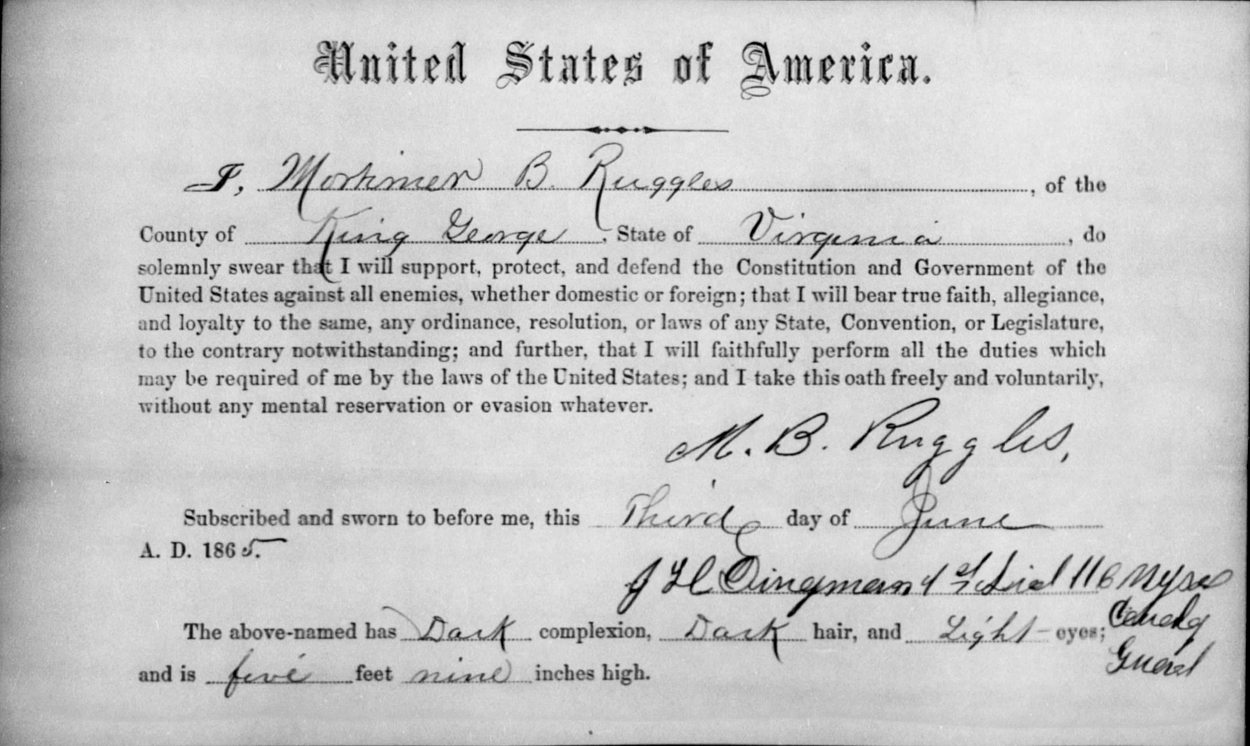 United States of America.
I, Mortimer B. Ruggles, of the
County of King George, State of Virginia, do
solemnly swear that I will support, protect, and defend the Constitution and Government of the
United States against all enemies, whether domestic or foreign; that I will bear true faith, allegiance,
and loyalty to the same, any ordinance, resolution, or laws of any State, Convention, or Legislature,
to the contrary notwithstanding; and further, that I will faithfully perform all the duties which
may be required of me by the laws of the United States; and I take this oath freely and voluntarily,
without any mental reservation or evasion whatever.
M. B. Ruggles,
Subscribed and sworn to before me, this Third day of June
A. D. 1865.
Dingman
The above-named has Dark complexion, Dark hair, and Light eyes;
Guard
and is five feet nine inches high.